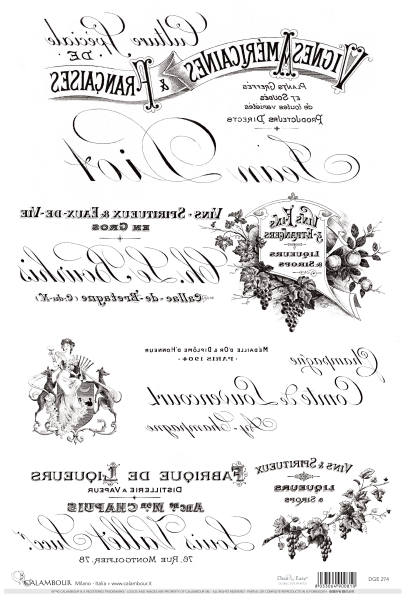 Culture Spéciale
DE
VIGNES AMÉRICAINES & FRANÇAISES
PLANTS GREFFÉS
ET SOUDÉS
de toutes variétés
PRODUCTEURS DIRECTS
Jean Diot
VINS FINS
& ÉTRANGERS
LIQUEURS
& SIROPS
VINS · SPIRITUEUX & EAUX-DE-VIE
EN GROS
Ch. Le Bourhis
Callac-de-Bretagne (C.-du-N.)
MÉDAILLE D'OR & DIPLÔME D'HONNEUR
· PARIS 1904 ·
Champagne
Comte de Louvencourt
Ay-Champagne
VINS & SPIRITUEUX
LIQUEURS
& SIROPS
FABRIQUE DE LIQUEURS
DISTILLERIE À VAPEUR
ANCne Mon CHAPUIS
Louis Valliot Succr
76, RUE MONTGOLFIER, 78
CALAMBOUR Milano - Italia • www.calambour.it
DGE 274